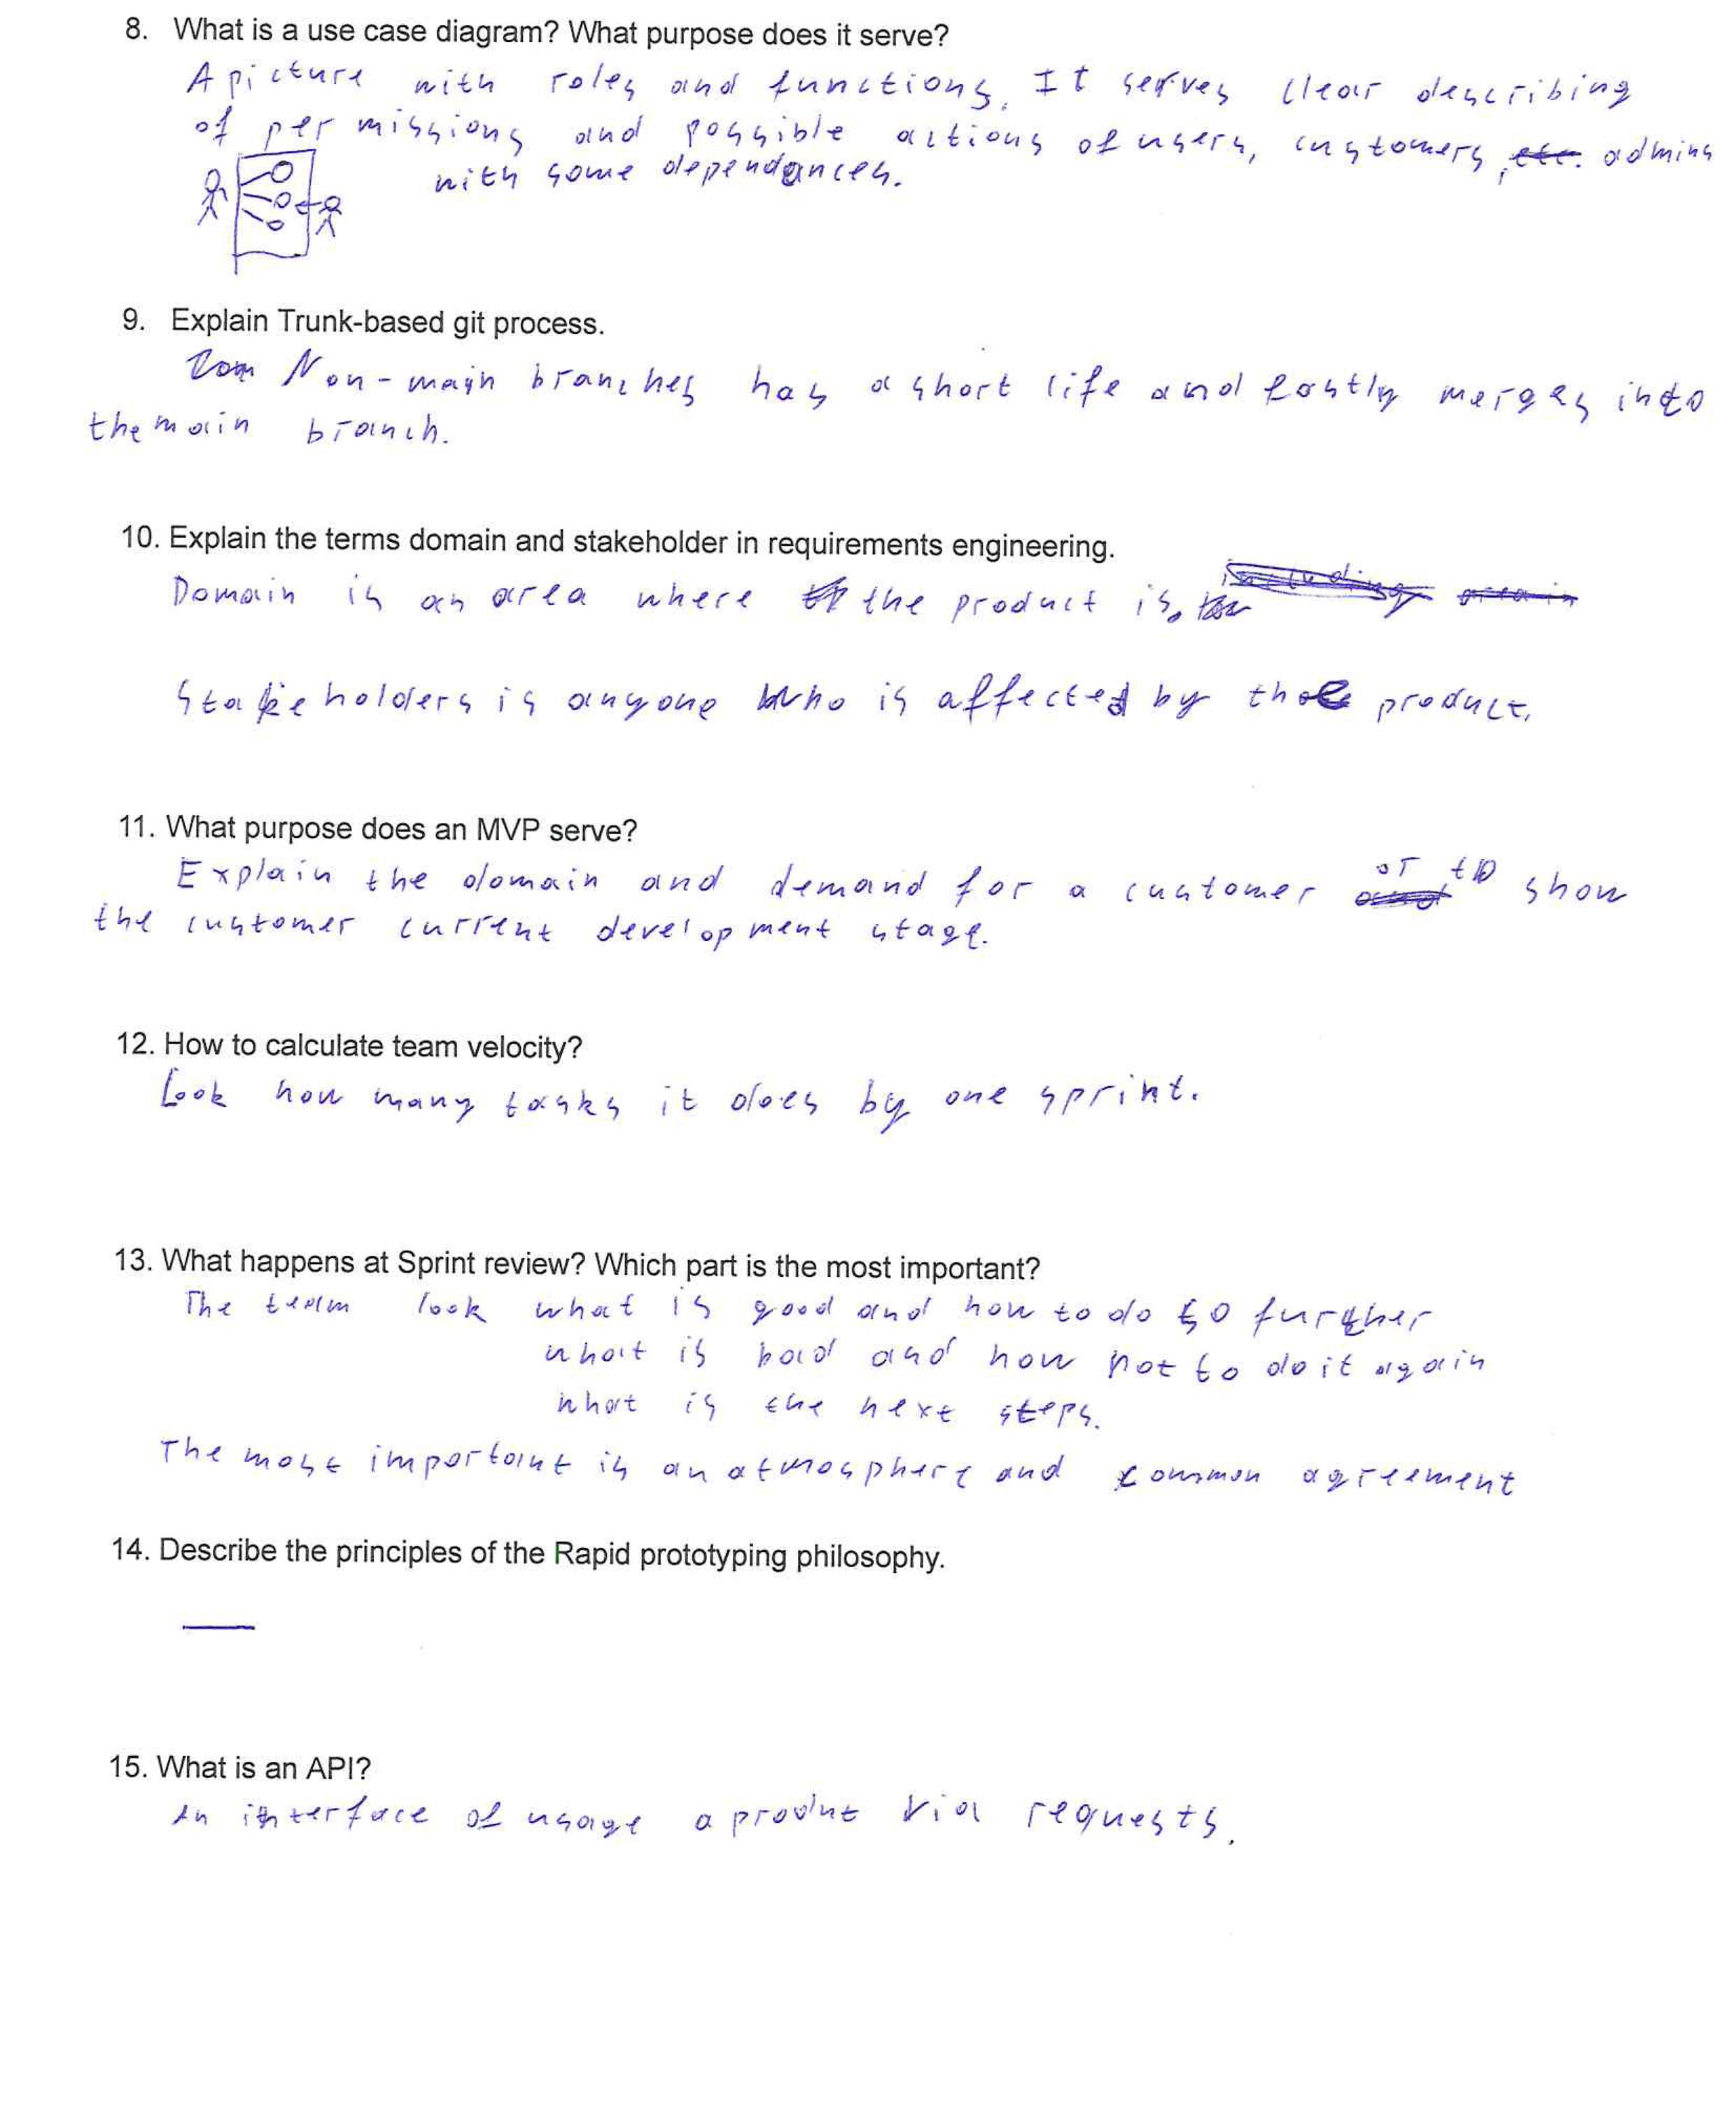 8. What is a use case diagram? What purpose does it serve?
A picture with roles and functions. It serves clear describing
of permissions and possible actions of users, customers, etc. admins
with some dependances.
9. Explain Trunk-based git process.
Non-main branches has a short life and fastly merges into
the main branch.
10. Explain the terms domain and stakeholder in requirements engineering.
Domain is an area where the product is.
Stakeholders is anyone who is affected by the product.
11. What purpose does an MVP serve?
Explain the domain and demand for a customer or to show
the customer current development stage.
12. How to calculate team velocity?
Look how many tasks it does by one sprint.
13. What happens at Sprint review? Which part is the most important?
The team look what is good and how to do so further
what is bad and how not to do it again
what is the next steps.
The most important is an atmosphere and common agreement
14. Describe the principles of the Rapid prototyping philosophy.
15. What is an API?
An interface of usage a product via requests.